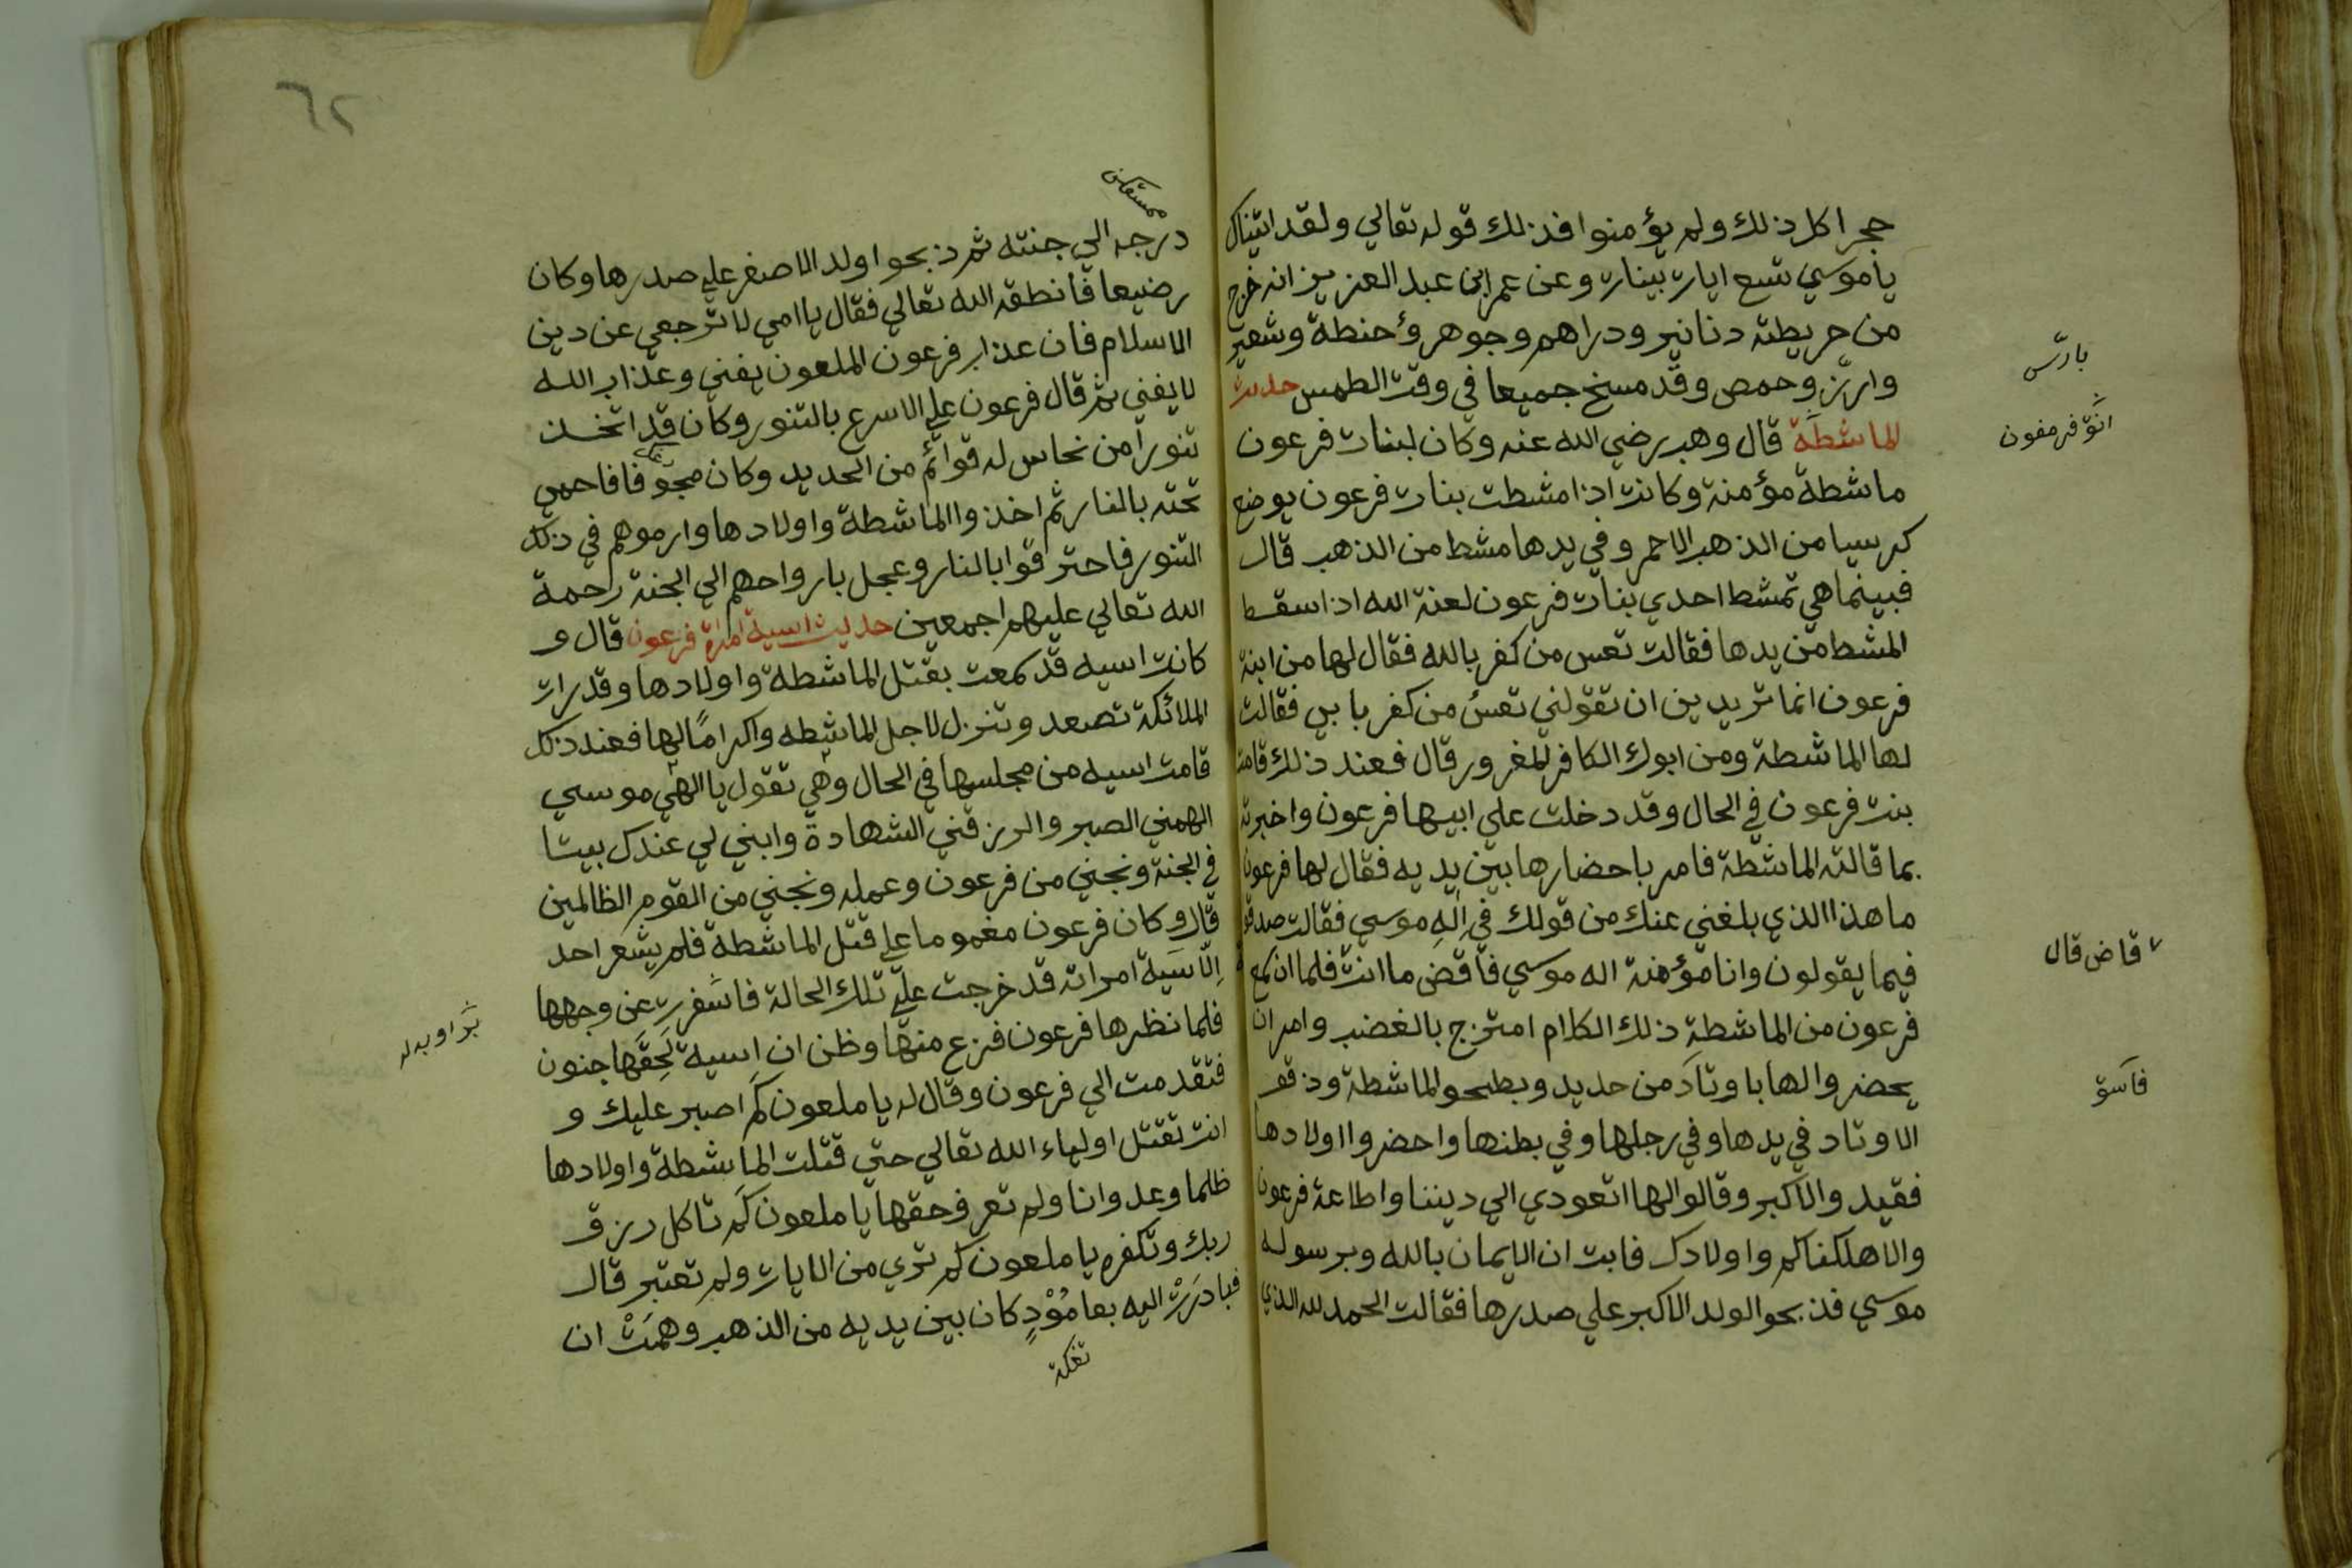 حجرا كل ذلك ولم يؤمنوا فذلك قوله تعالي ولقد اتيناك
ياموسي تسع ايات بينات وعن عمر ابن عبد العزيز انه خرج
من خريطته دنانير ودراهم وجوهر وحنطة وشعير
وارز وحمص وقد مسخ جميعا في وقت الطمس حديث
الماشطة قال وهب رضي الله عنه وكان لبنات فرعون
ماشطة مؤمنة وكانت اذا مشطت بنات فرعون يوضع
كرسيا من الذهب الاحمر وفي يدها مشط من الذهب قال
فبينما هي تمشط احدي بنات فرعون لعنة الله اذا سقط
المشط من يدها فقالت تعس من كفر بالله فقال لها من ابنة
فرعون انما تريدين ان تقولني تعسُ من كفر بابي فقالت
لها الماشطة ومن ابوك الكافر المغرور قال فعند ذلك قامت
بنت فرعون في الحال وقد دخلت علي ابيها فرعون واخبرته
بما قالته الماشطة فامر باحضارها بين يديه فقال لها فرعون
ما هذا الذي بلغني عنك من قولك في الهِ موسي فقالت صدقو
فيما يقولون وانا مؤمنة اله موسي فاقض ما انت فلما ان سمع
فرعون من الماشطة ذلك الكلام امتزج بالغضب وامر ان
يحضروا لها باوتادَ من حديد وبطحو الماشطة ودقو
الاوتاد في يدها وفي رجلها وفي بطنها واحضروا اولادها
فقيد والاكبر وقالوا لها اتعودي الي ديننا واطاعة فرعون
والا هلكناكم واولادك فابت ان الايمان بالله وبرسوله
موسي فذبحو الولد الاكبر علي صدرها فقالت الحمد لله الذي
بادسّ
قاض قال
فاسَو
٦٢
درجه الي جنته ثم ذبحوا ولد الاصغر علي صدرها وكان
رضيعا فانطقه الله تعالي فقال ياامي لا ترجعي عن دين
الاسلام فان عذاب فرعون الملعون يفني وعذاب الله
لا يفني ثم قال فرعون علي الاسرع بالتنور وكان قد اتخذ
تنورا من نحاس له قوائم من الحديد وكان مجوّفا فاحمي
تحته بالنار ثم اخذوا الماشطة واولادها وارموهم في ذلك
التنور فاحترقوا بالنار وعجل بارواحهم الي الجنة رحمة
الله تعالي عليهم اجمعين حديث اسية امراة فرعون قال و
كانت اسيه قد سمعت بقتل الماشطة واولادها وقد رات
الملائكة تصعد وتنزل لاجل الماشطه واكرامًا لها فعند ذلك
قامت اسيه من مجلسها في الحال وهي تقول يا الهي موسي
الهمني الصبر والرزقني الشهادة وابني لي عندك بيتا
في الجنة ونجني من فرعون وعمله ونجني من القوم الظالمين
قال وكان فرعون مغموما علي قتل الماشطة فلم يشعر احد
اِلّاسَية امراته قد خرجت علي تلك الحالة فاسفرت عن وجهها
فلما نظرها فرعون فزع منها وظن ان اسية لَحِقَها جنون
فتقدمت الي فرعون وقال له يا ملعون كم اصبر عليك و
انت تقتل اولياء الله تعالي حتي قتلت الماشطة واولادها
ظلما وعدوانا ولم تعرفو حقها يا ملعون كَم تاكل رزق
ربك وتكفره يا ملعون كم تري من الايات ولم تعتبر قال
فبادرَرتْ اليه بعامُوْدٍ كان بين يديه من الذهب وهمَتْ ان